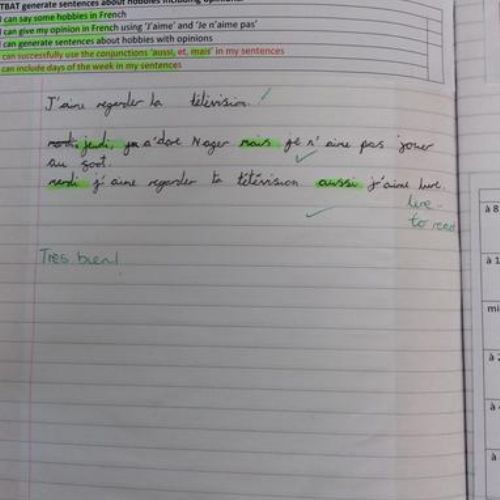 TBAT generate sentences about hobbies including opinions.
I can say some hobbies in French
I can give my opinion in French using 'J'aime' and 'Je n'aime pas'
I can generate sentences about hobbies with opinions
I can successfully use the conjunctions 'aussi, et, mais' in my sentences
I can include days of the week in my sentences
J'aime regarder la télévision.
jeudi, a'dore Nager mais je n'aime pas jouer
au foot.
mardi j'aime regarder la télévision aussi j'aime lire.
lire -
to read
Très bien!
à 8
à 1
mi
à 2
à
à